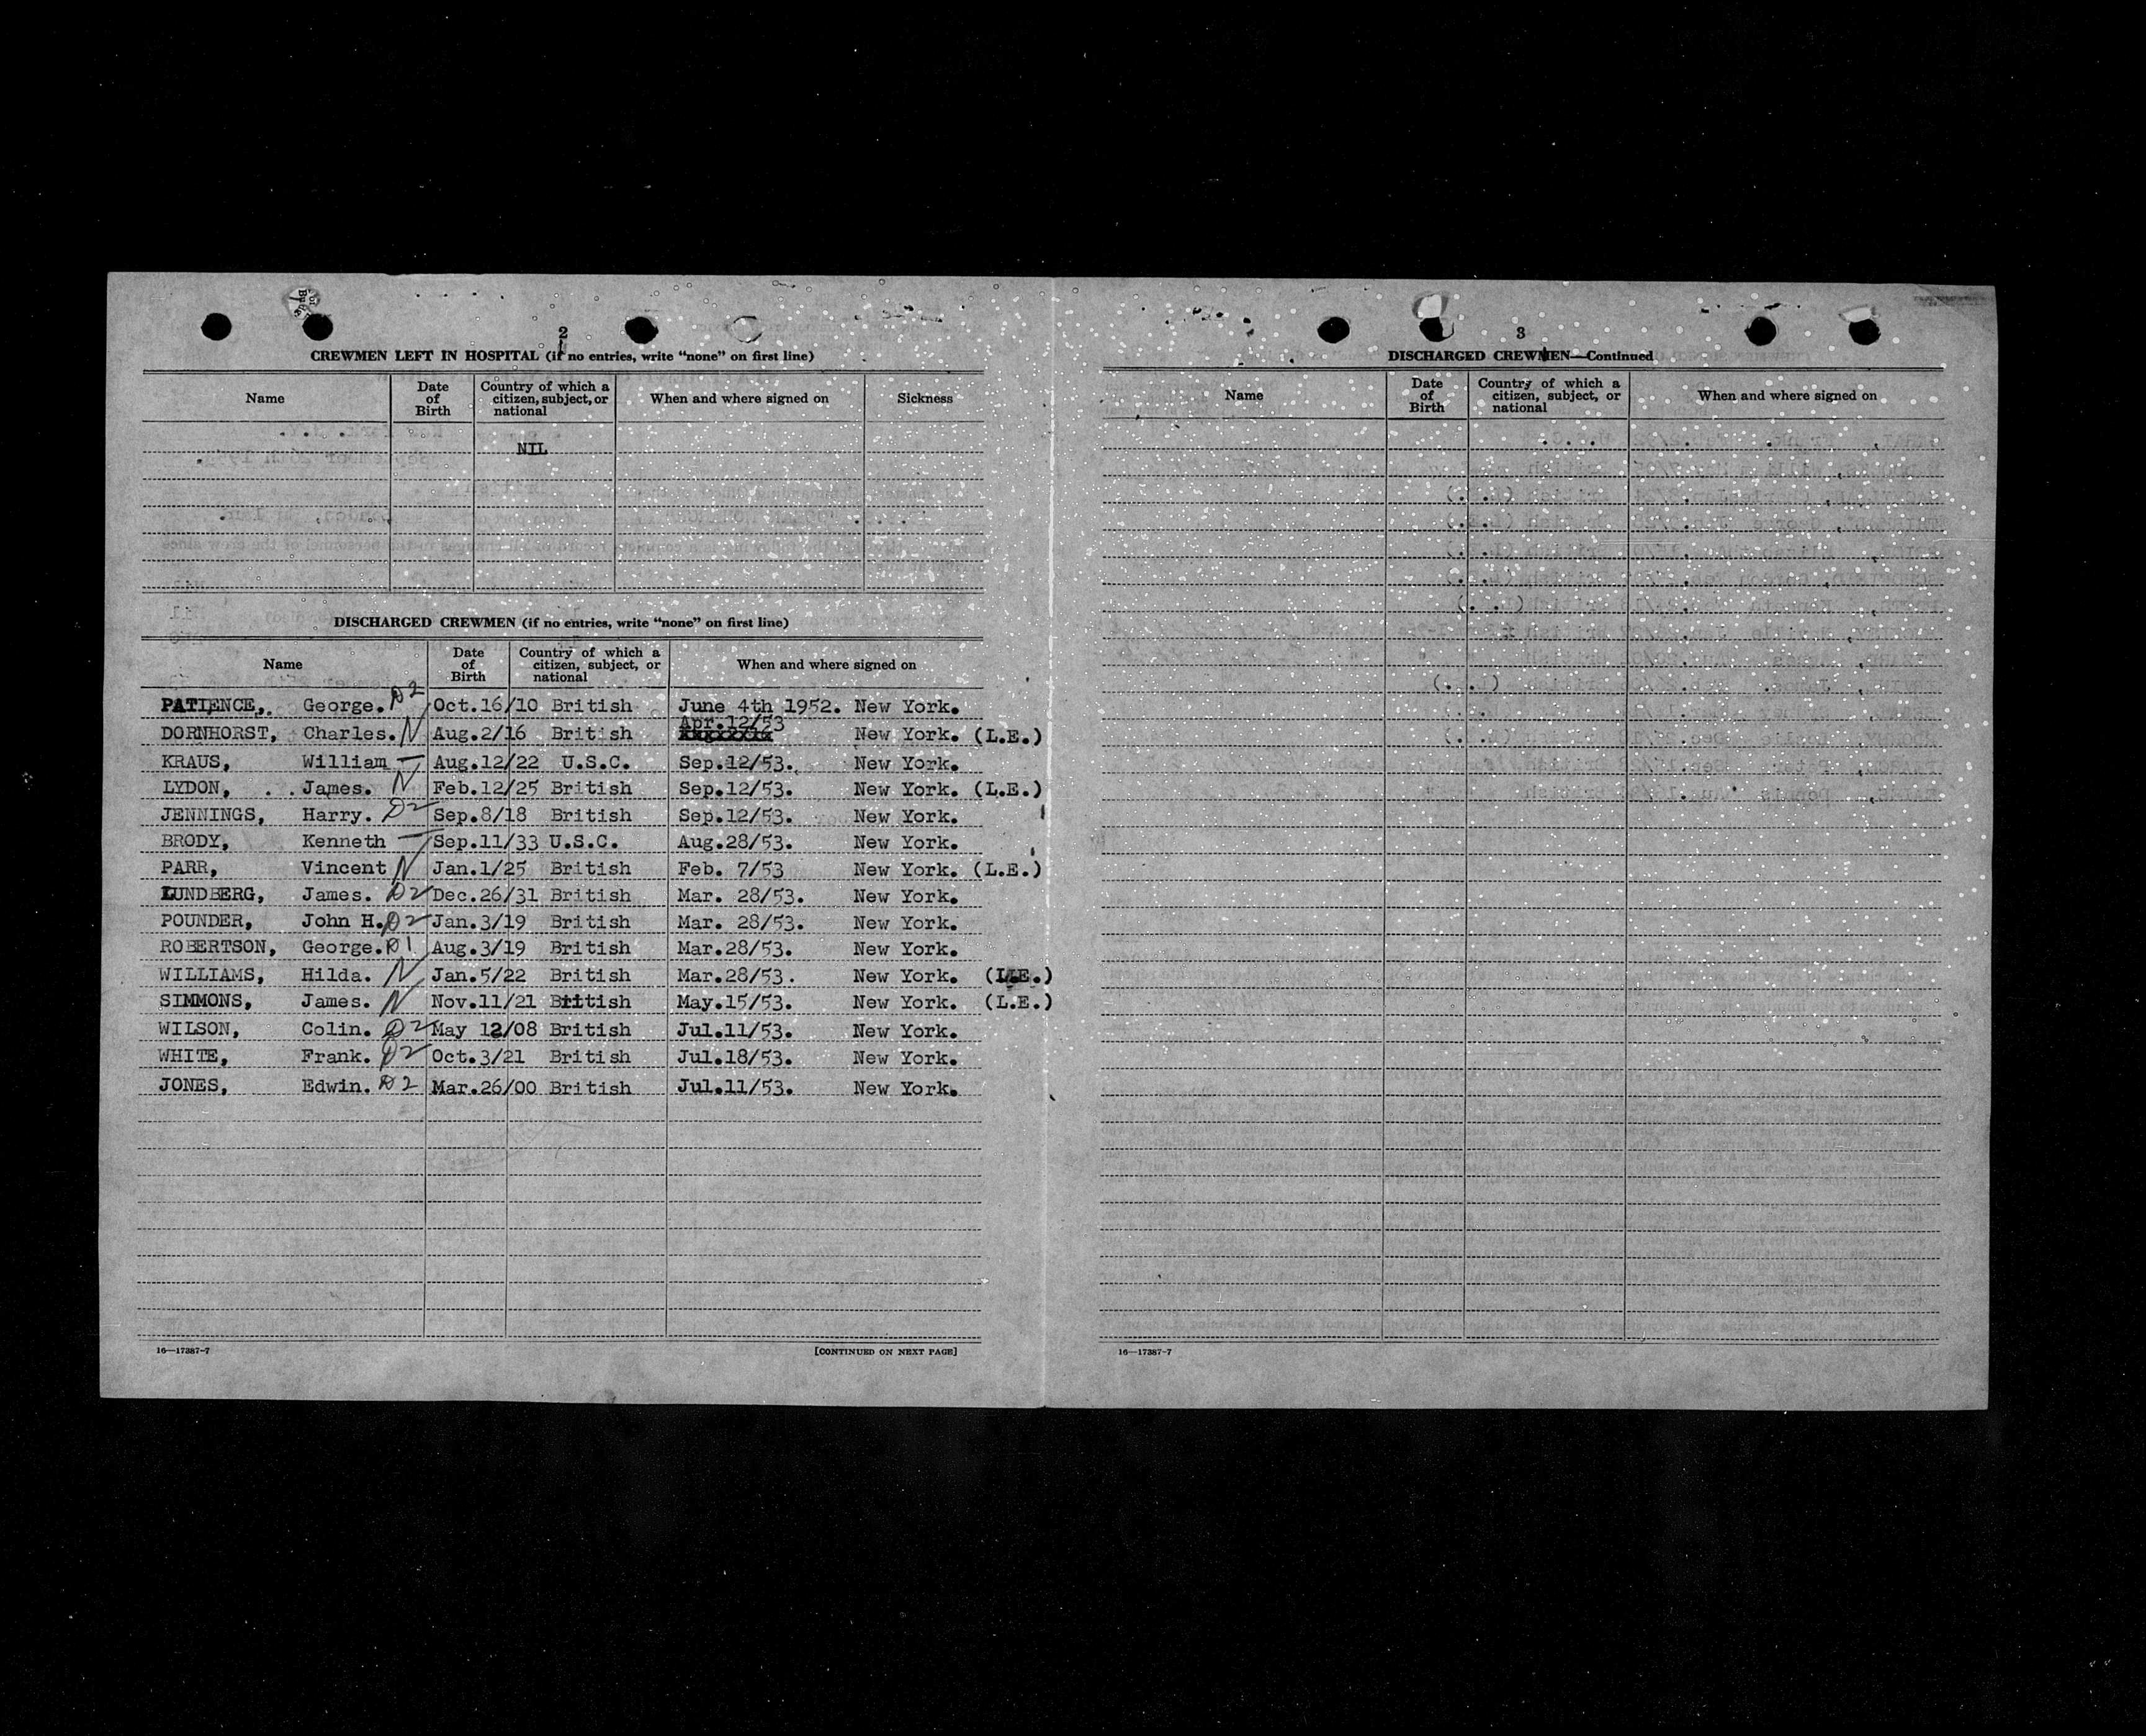 2
CREWMEN LEFT IN HOSPITAL (if no entries, write "none" on first line)
Name Date of Birth Country of which a citizen, subject, or national When and where signed on Sickness
NIL
DISCHARGED CREWMEN (if no entries, write "none" on first line)
Name Date of Birth Country of which a citizen, subject, or national When and where signed on
PATIENCE, George. D2 Oct.16/10 British June 4th 1952. New York.
Apr.12/53
DORNHORST, Charles. N Aug.2/16 British New York. (L.E.)
KRAUS, William — Aug.12/22 U.S.C. Sep.12/53. New York.
LYDON, James. N Feb.12/25 British Sep.12/53. New York. (L.E.)
JENNINGS, Harry. D2 Sep.8/18 British Sep.12/53. New York.
BRODY, Kenneth — Sep.11/33 U.S.C. Aug.28/53. New York.
PARR, Vincent N Jan.1/25 British Feb. 7/53 New York. (L.E.)
LUNDBERG, James. D2 Dec.26/31 British Mar. 28/53. New York.
POUNDER, John H. D2 Jan.3/19 British Mar. 28/53. New York.
ROBERTSON, George. D1 Aug.3/19 British Mar.28/53. New York.
WILLIAMS, Hilda. N Jan.5/22 British Mar.28/53. New York. (L.E.)
SIMMONS, James. N Nov.11/21 British May.15/53. New York. (L.E.)
WILSON, Colin. D2 May 12/08 British Jul.11/53. New York.
WHITE, Frank. D2 Oct.3/21 British Jul.18/53. New York.
JONES, Edwin. D2 Mar.26/00 British Jul.11/53. New York.
16—17387-7 [CONTINUED ON NEXT PAGE]
3
DISCHARGED CREWMEN—Continued
Name Date of Birth Country of which a citizen, subject, or national When and where signed on
16—17387-7